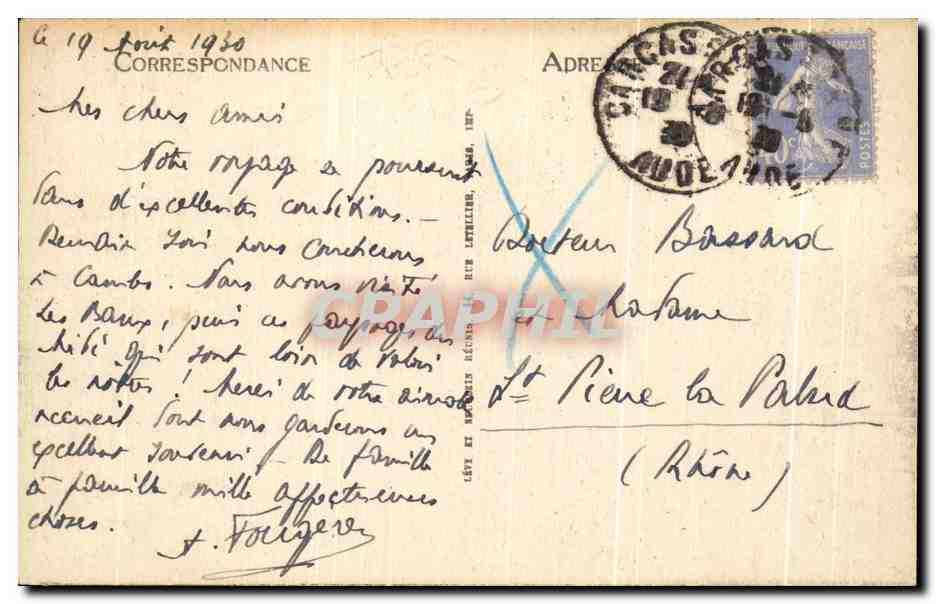 le 19 Août 1930
CORRESPONDANCE
Mes chers amis
Notre voyage se poursuit
dans d'excellentes conditions. —
Demain soir nous coucherons
à Cambo. Nous avons visité
Les Baux, puis ces paysages du
Midi qui sont loin de valoir
les nôtres ! Merci de votre aimable
accueil dont nous garderons un
excellent souvenir — De famille
à famille mille affectueuses
choses.
A. Fougère
LÉVY ET NEURDEIN RÉUNIS, RUE LETELLIER, PARIS, IMP.
ADRESSE
CARCASSONNE
AUDE
FRANÇAISE
POSTES
Docteur Bassard
et Madame
St Pierre la Palud
(Rhône)
CPAPHIL